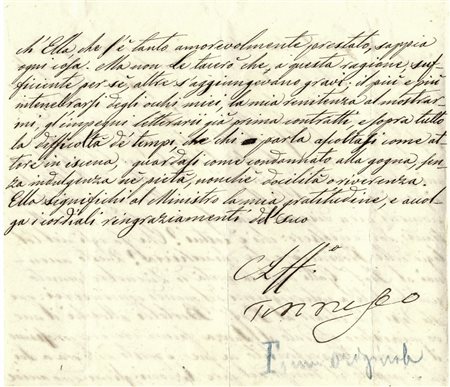 ch'Ella che s'è tanto amorevolmente prestato, sappia
ogni cosa. Ma non le tacerò che, a questa ragione suf-
ficiente per sè, altre s'aggiungevano gravi: il più e più
intenebrarsi degli occhi miei, la mia renitenza al mostrar-
mi, gl'impegni letterarii già prima contratti, e sopra tutto
la difficoltà de' tempi, che chi parla ascoltasi come at-
tore in iscena, guardasi come condannato alla gogna, sen-
za indulgenza nè pietà, nonchè docilità o riverenza.
Ella significhi al Ministro la mia gratitudine, e accol-
ga i cordiali ringraziamenti del suo
Aff.o
Tommaseo
originale